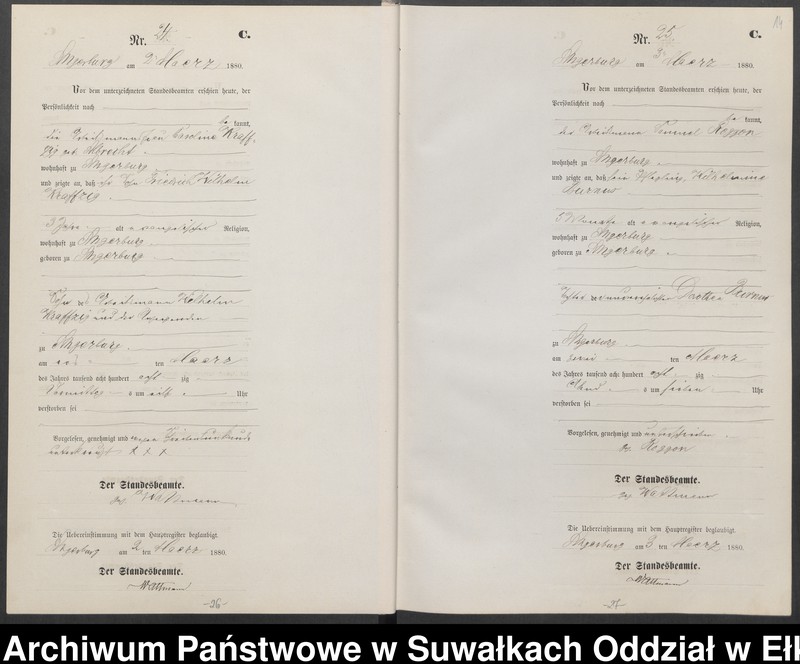 Nr. 24. C.
Angerburg am 2 Maerz 1880.
Vor dem unterzeichneten Standesbeamten erschien heute, der
Persönlichkeit nach
be kannt,
die frau Caroline Kraff-
zig geb. Albrecht
wohnhaft zu Angerburg
und zeigte an, daß ihr Sohn Friedrich Wilhelm
Kraffzig
3 Jahre alt evangelischer Religion,
wohnhaft zu Angerburg
geboren zu Angerburg
Sohn des Wilhelm
Kraffzig und der
zu Angerburg
am ten Maerz
des Jahres tausend acht hundert acht zig
Vormittags um acht Uhr
verstorben sei
Vorgelesen, genehmigt und wegen
unterkreuzt x x x
Der Standesbeamte.
gez Wattmann
Die Uebereinstimmung mit dem Hauptregister beglaubigt.
Angerburg am 2 ten Maerz 1880.
Der Standesbeamte.
Wattmann
-26-
14
Nr. 25. C.
Angerburg am 3 Maerz 1880.
Vor dem unterzeichneten Standesbeamten erschien heute, der
Persönlichkeit nach
be kannt,
Roggon
wohnhaft zu Angerburg
und zeigte an, daß Wilhelmine
5 Monate alt evangelischer Religion,
wohnhaft zu Angerburg
geboren zu Angerburg
Tochter der unverehelichten
zu Angerburg
am zwei ten Maerz
des Jahres tausend acht hundert acht zig
Abend um sieben Uhr
verstorben sei
Vorgelesen, genehmigt und unterschrieben
gez Roggon
Der Standesbeamte.
gez Wattmann
Die Uebereinstimmung mit dem Hauptregister beglaubigt.
Angerburg am 3 ten Maerz 1880.
Der Standesbeamte.
Wattmann
-27-
Archiwum Państwowe w Suwałkach Oddział w Ełk